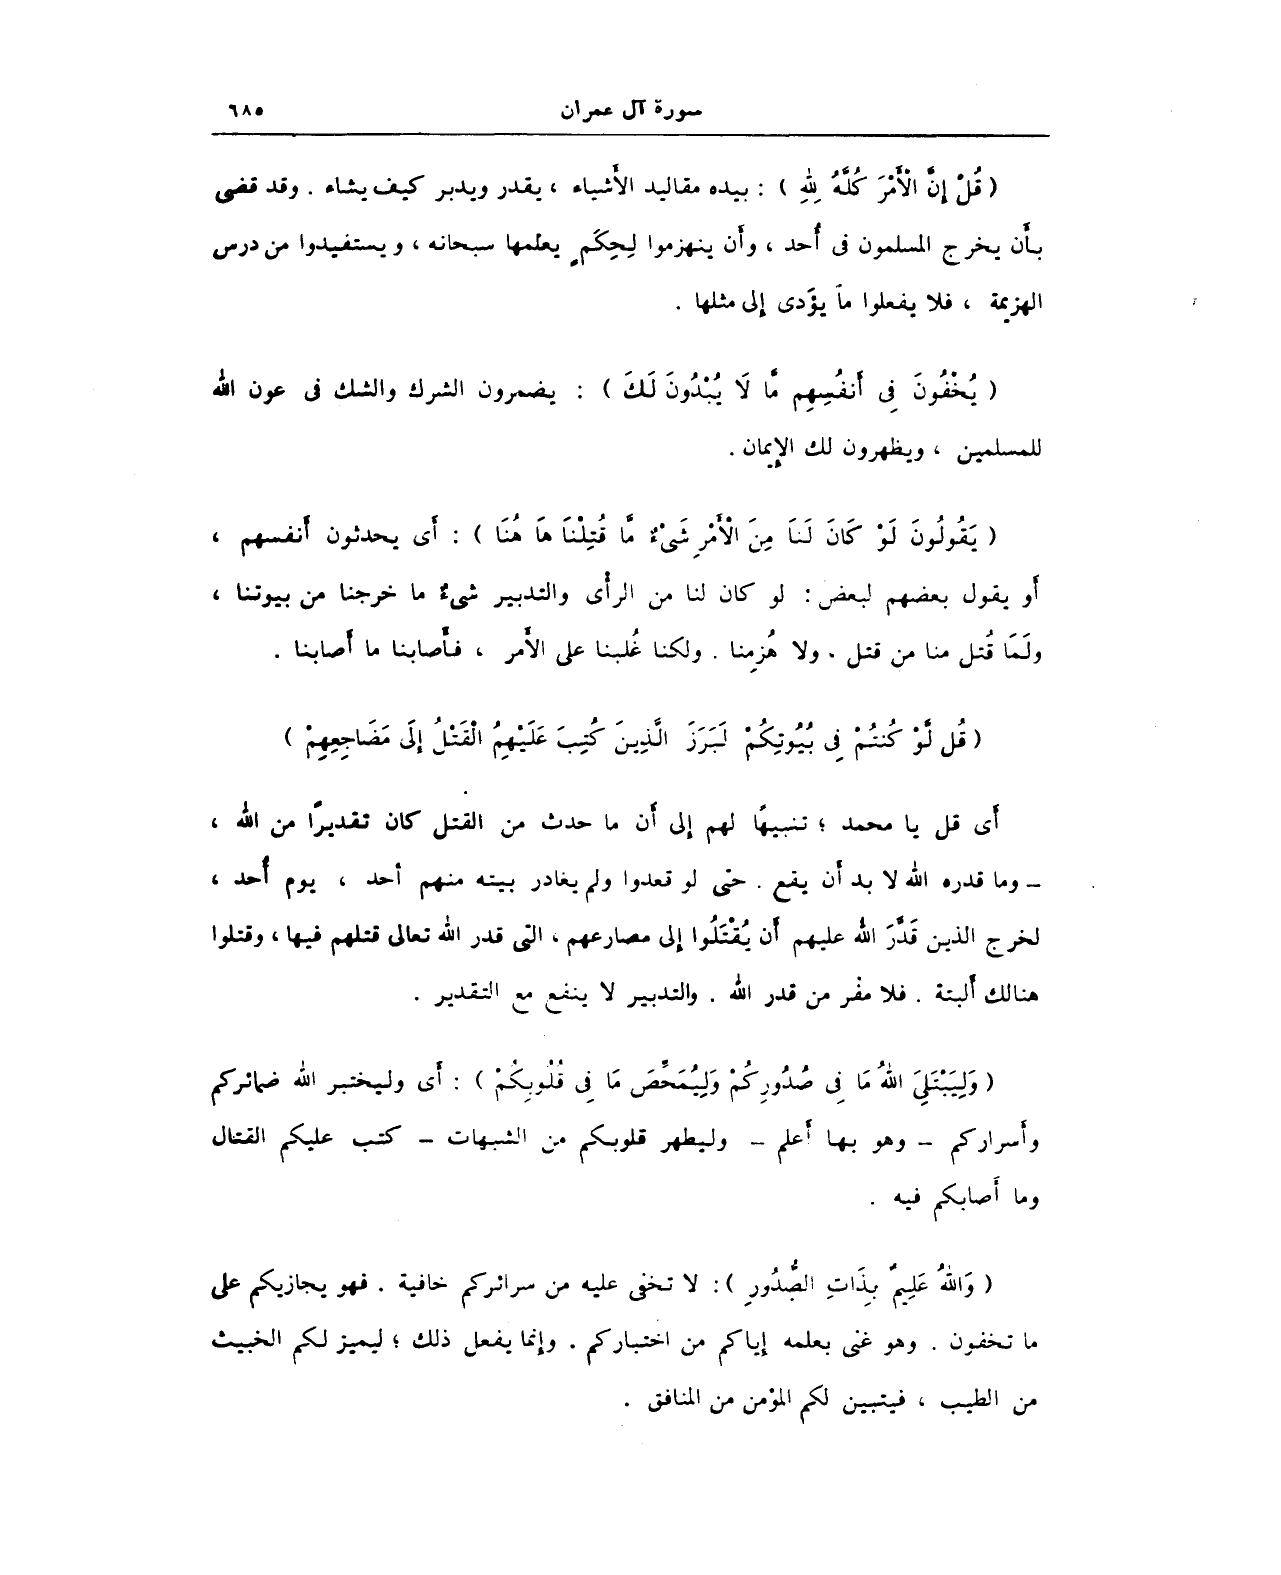 سورة آل عمران ٦٨٥
( قُلْ إِنَّ الْأَمْرَ كُلَّهُ لِلهِ ) : بيده مقاليد الأَشياء ، يقدر ويدبر كيف يشاء . وقد قضى
بأَن يخرج المسلمون فى أُحد ، وأَن ينهزموا لِحِكَمٍ يعلمها سبحانه ، ويستفيدوا من درس
الهزيمة ، فلا يفعلوا ما يؤَدى إِلى مثلها .
( يُخْفُونَ فِى أَنفُسِهِم مَّا لَا يُبْدُونَ لَكَ ) : يضمرون الشرك والشك فى عون الله
للمسلمين ، ويظهرون لك الإِيمان .
( يَقُولُونَ لَوْ كَانَ لَنَا مِنَ الْأَمْرِ شَىْءٌ مَّا قُتِلْنَا هَا هُنَا ) : أَى يحدثون أَنفسهم ،
أَو يقول بعضهم لبعض : لو كان لنا من الرأْى والتدبير شىءٌ ما خرجنا من بيوتنا ،
ولَمَا قُتل منا من قتل . ولا هُزِمنا . ولكنا غُلبنا على الأَمر ، فأَصابنا ما أَصابنا .
( قُل لَّوْ كُنتُمْ فِى بُيُوتِكُمْ لَبَرَزَ الَّذِينَ كُتِبَ عَلَيْهِمُ الْقَتْلُ إِلَى مَضَاجِعِهِمْ )
أَى قل يا محمد ؛ تنبيهًا لهم إِلى أَن ما حدث من القتل كان تقديرًا من الله ،
– وما قدره الله لا بد أَن يقع . حتى لو قعدوا ولم يغادر بيته منهم أحد ، يوم أُحد ،
لخرج الذين قَدَّرَ الله عليهم أَن يُقْتَلُوا إِلى مصارعهم ، التى قدر الله تعالى قتلهم فيها ، وقتلوا
هنالك أَلبتة . فلا مفر من قدر الله . والتدبير لا ينفع مع التقدير .
( وَلِيَبْتَلِىَ اللهُ مَا فِى صُدُورِكُمْ وَلِيُمَحِّصَ مَا فِى قُلُوبِكُمْ ) : أَى وليختبر الله ضمائركم
وأَسراركم – وهو بها أَعلم – وليطهر قلوبكم من الشبهات – كتب عليكم القتال
وما أَصابكم فيه .
( وَاللهُ عَلِيمٌ بِذَاتِ الصُّدُورِ ) : لا تخفى عليه من سرائركم خافية . فهو يجازيكم على
ما تخفون . وهو غنى بعلمه إِياكم من اختباركم . وإِنما يفعل ذلك ؛ ليميز لكم الخبيث
من الطيب ، فيتبين لكم المؤْمن من المنافق .